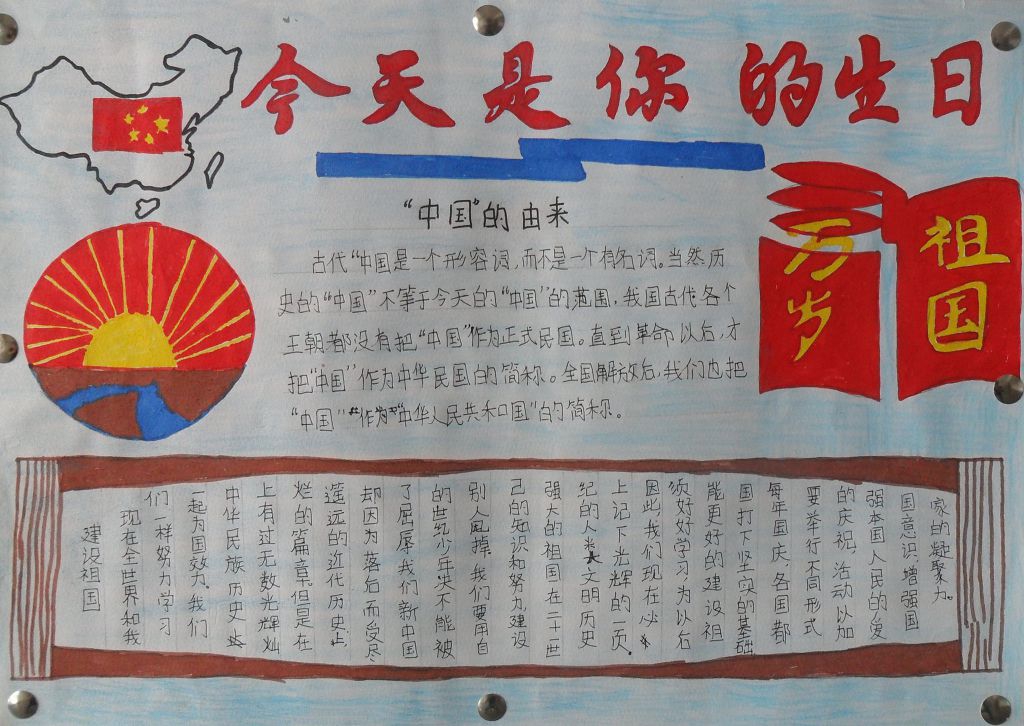 今天是你的生日
"中国"的由来
古代"中国是一个形容词,而不是一个有名词。当然,历
史的"中国"不等于今天的"中国"的范围,我国古代各个
王朝都没有把"中国"作为正式民国。直到革命以后,才
把"中国"作为中华民国的简称。全国解放后,我们也把
"中国""作为""中华人民共和国"的简称。
祖国
万岁
建设祖国
现在全世界和我
们一样努力学习
一起为国效力。我们
中华民族历史
上有过无数光辉灿
烂的篇章。但是在
遥远的近代历史上,
却因为落后而受尽
了屈辱,我们新中国
的世纪少年决不能被
别人甩掉,我们要用自
己的知识和努力,建设
强大的祖国,在二十一世
纪的人类文明历史
上记下光辉的一页。
因此,我们现在必
须好好学习为以后
能更好的建设祖
国打下坚实的基础
每年国庆,各国都
要举行不同形式
的庆祝,活动以加
强本国人民的爱
国意识,增强国
家的凝聚力。